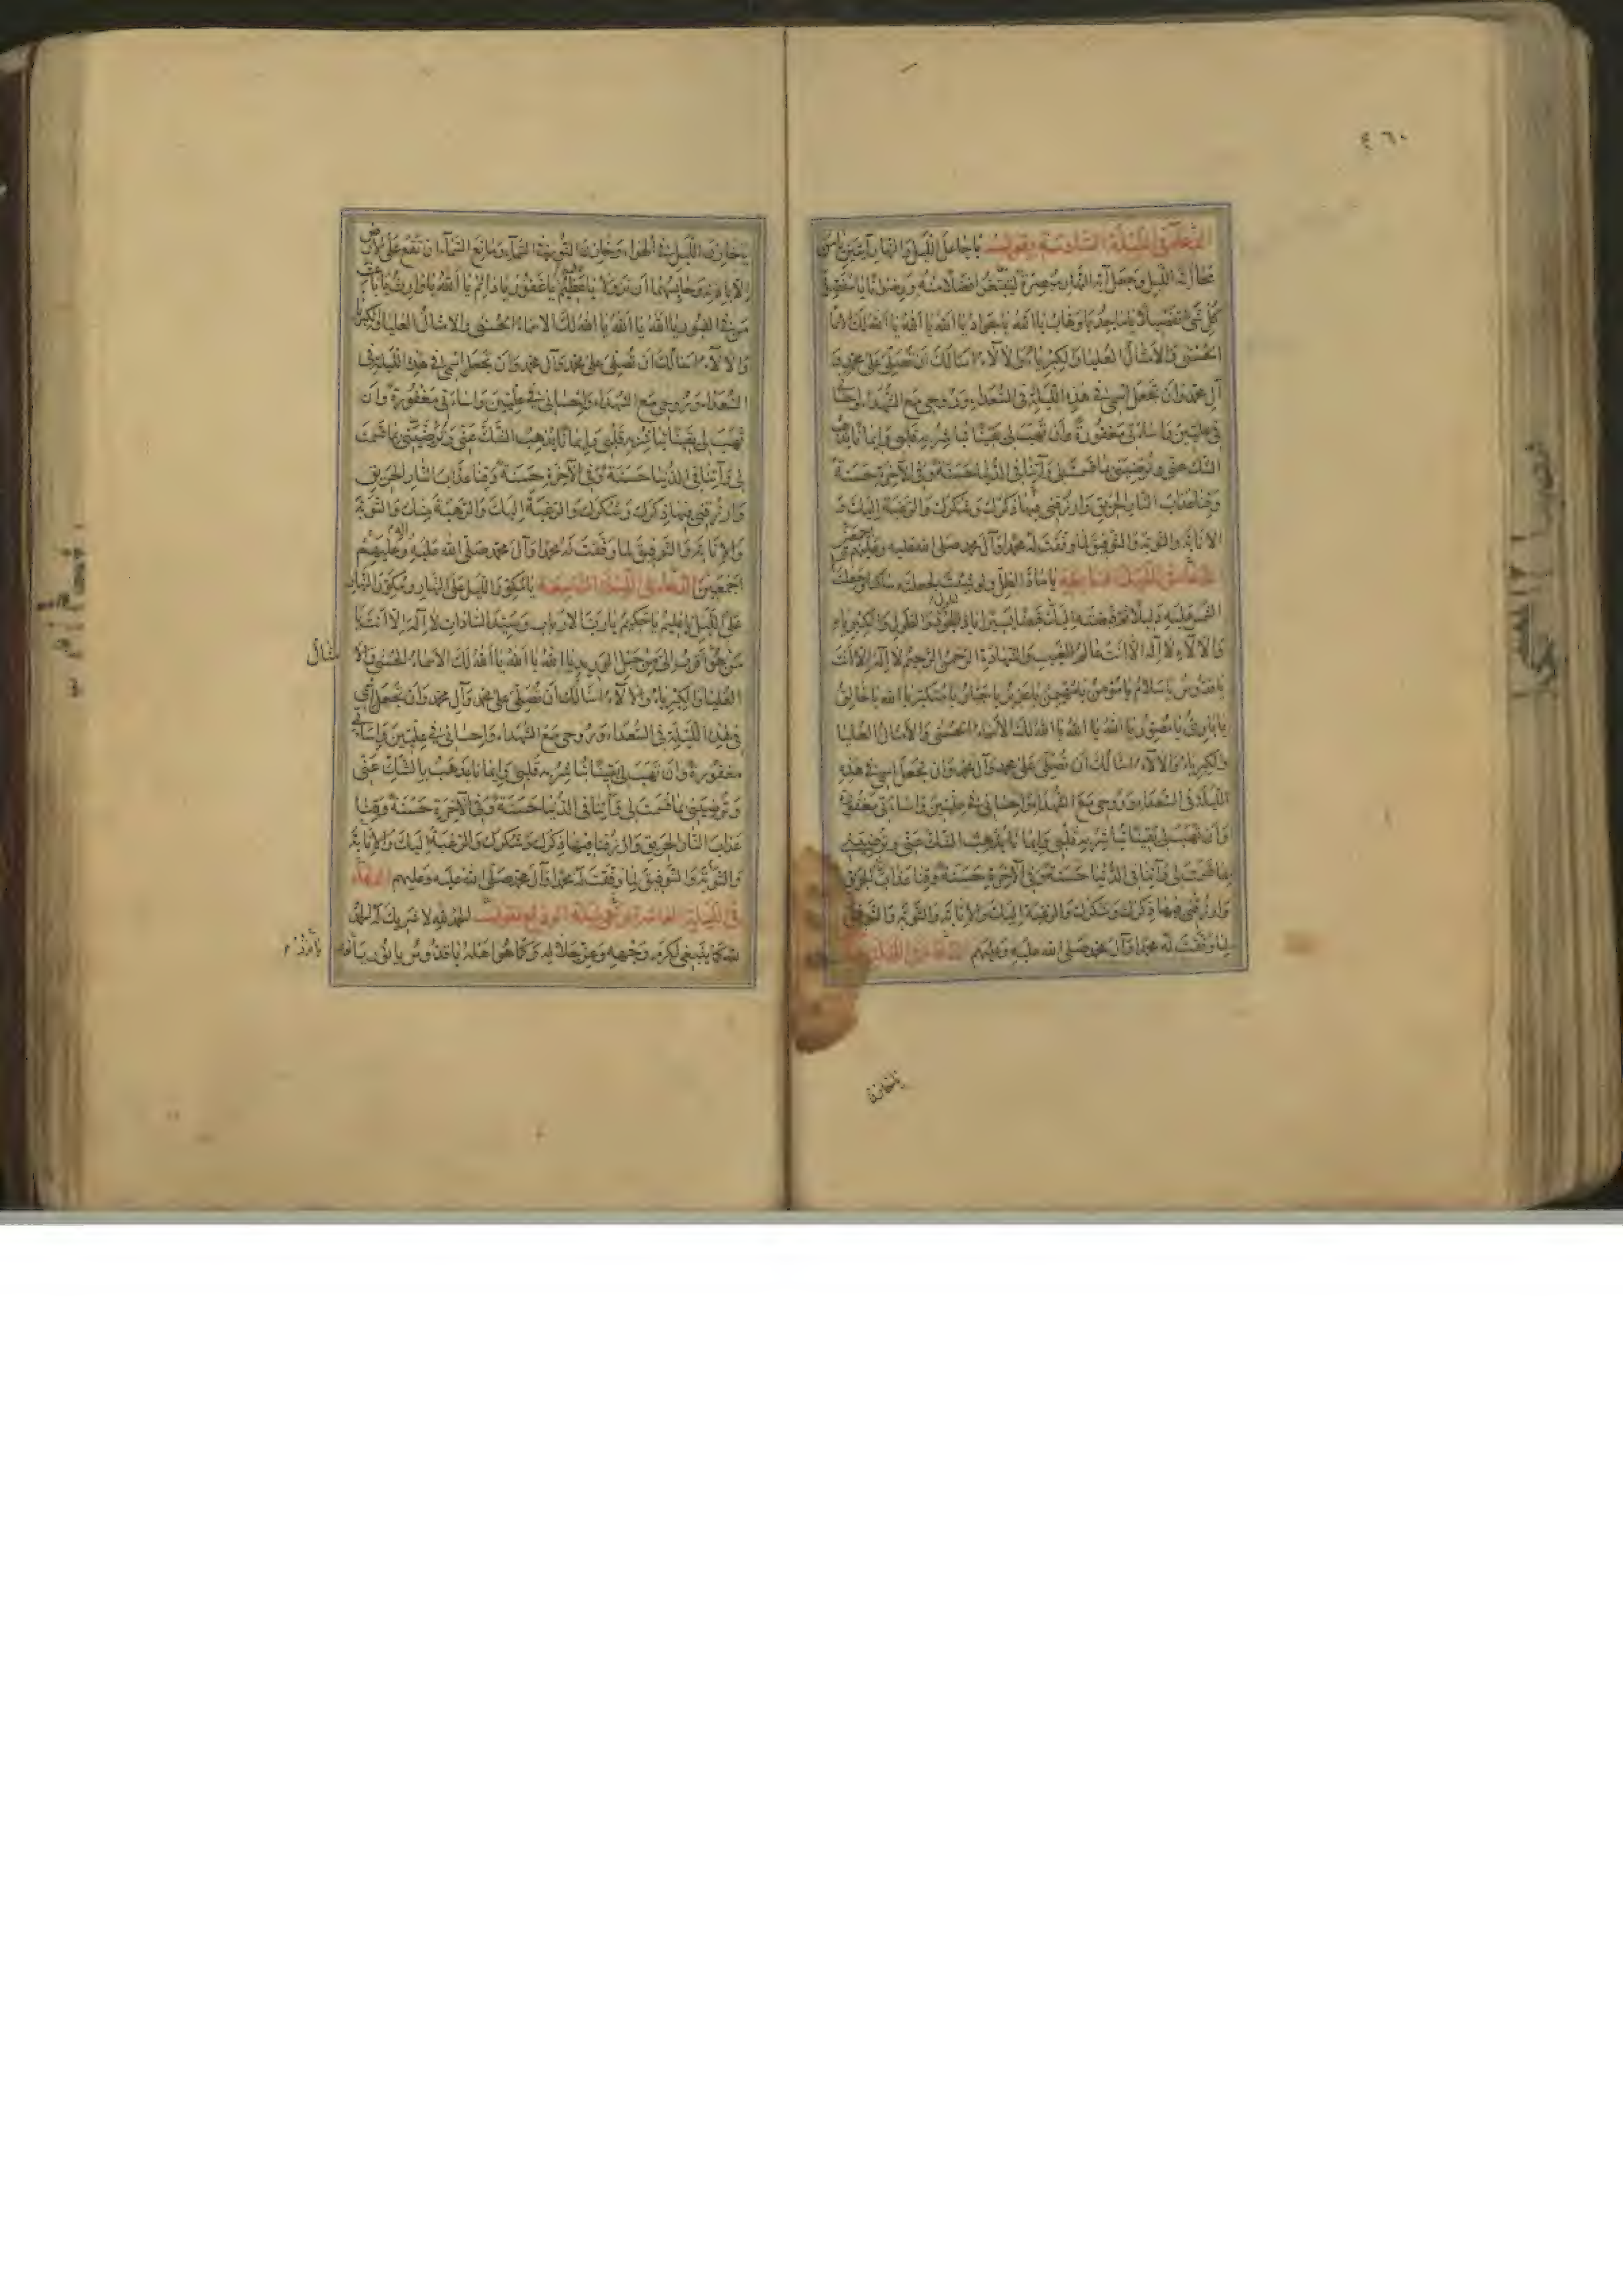 ٤٦٠
الدعاء في الليلة السادسة وتقول يا جاعل الليل والنهار آيتين يا من
محا آية الليل وجعل آية النهار مبصرة لتبتغوا فضلا منه ورضوانا يا مفصل
كل شئ تفصيلا يا ماجد يا وهاب يا الله يا جواد يا الله يا الله يا الله لك الاسماء
الحسنى والامثال العليا والكبرياء والآلاء اسألك ان تصلي على محمد و
آل محمد وان تجعل اسمي في هذه الليلة في السعداء وروحي مع الشهداء واحساني
في عليين واساءتي مغفورة وان تهب لي يقينا تباشر به قلبي وايمانا يذهب
الشك عني وترضيني بما قسمت لي وآتنا في الدنيا حسنة وفي الآخرة حسنة
وقنا عذاب النار الحريق وارزقني فيها ذكرك وشكرك والرغبة اليك و
الانابة والتوبة والتوفيق لما وفقت له محمدا وآل محمد صلى الله عليه وعليهم اجمعين
الدعاء في الليلة السابعة يا ماد الظل ولو شئت لجعلته ساكنا وجعلت
الشمس عليه دليلا ثم قبضته اليك قبضا يسيرا يا ذا الجود والطول والكبرياء
والآلاء لا اله الا انت عالم الغيب والشهادة الرحمن الرحيم لا اله الا انت
يا قدوس يا سلام يا مؤمن يا مهيمن يا عزيز يا جبار يا متكبر يا الله يا خالق
يا بارئ يا مصور يا الله يا الله يا الله لك الاسماء الحسنى والامثال العليا
والكبرياء والآلاء اسألك ان تصلي على محمد وآل محمد وان تجعل اسمي في هذه
الليلة في السعداء وروحي مع الشهداء واحساني في عليين واساءتي مغفورة
وان تهب لي يقينا تباشر به قلبي وايمانا يذهب الشك عني وترضيني
بما قسمت لي وآتنا في الدنيا حسنة وفي الآخرة حسنة وقنا عذاب الحريق
وارزقني فيها ذكرك وشكرك والرغبة اليك والانابة والتوبة والتوفيق
لما وفقت له محمدا وآل محمد صلى الله عليه وعليهم الدعاء في الليلة
يا خازن الليل في الهواء وخازن النور في السماء ومانع السماء ان تقع على الارض
الا باذنه وحابسهما ان تزولا يا عظيم يا غفور يا دائم يا الله يا وارث يا باعث
من في القبور يا الله يا الله يا الله لك الاسماء الحسنى والامثال العليا والكبرياء
والآلاء اسألك ان تصلي على محمد وآل محمد وان تجعل اسمي في هذه الليلة في
السعداء وروحي مع الشهداء واحساني في عليين واساءتي مغفورة وان
تهب لي يقينا تباشر به قلبي وايمانا يذهب الشك عني وترضيني بما قسمت
لي وآتنا في الدنيا حسنة وفي الآخرة حسنة وقنا عذاب النار الحريق
وارزقني فيها ذكرك وشكرك والرغبة اليك والرهبة منك والتوبة
والانابة والتوفيق لما وفقت له محمدا وآل محمد صلى الله عليه وعليهم
اجمعين الدعاء في الليلة التاسعة يا مكور الليل على النهار ومكور النهار
على الليل يا عليم يا حكيم يا رب الارباب وسيد السادات لا اله الا انت يا
من هو اقرب الي من حبل الوريد يا الله يا الله يا الله لك الاسماء الحسنى والا
مثال
العليا والكبرياء والآلاء اسألك ان تصلي على محمد وآل محمد وان تجعل اسمي
في هذه الليلة في السعداء وروحي مع الشهداء واحساني في عليين واساءتي
مغفورة وان تهب لي يقينا تباشر به قلبي وايمانا يذهب بالشك عني
وترضيني بما قسمت لي وآتنا في الدنيا حسنة وفي الآخرة حسنة وقنا
عذاب النار الحريق وارزقنا فيها ذكرك وشكرك والرغبة اليك والانابة
والتوبة والتوفيق لما وفقت له محمدا وآل محمد صلى الله عليه وعليهم الدعاء
في الليلة العاشرة وتقول الحمد لله لا شريك له الحمد
لله كما ينبغي لكرم وجهه وعز جلاله وكما هو اهله يا قدوس يا نور يا نور